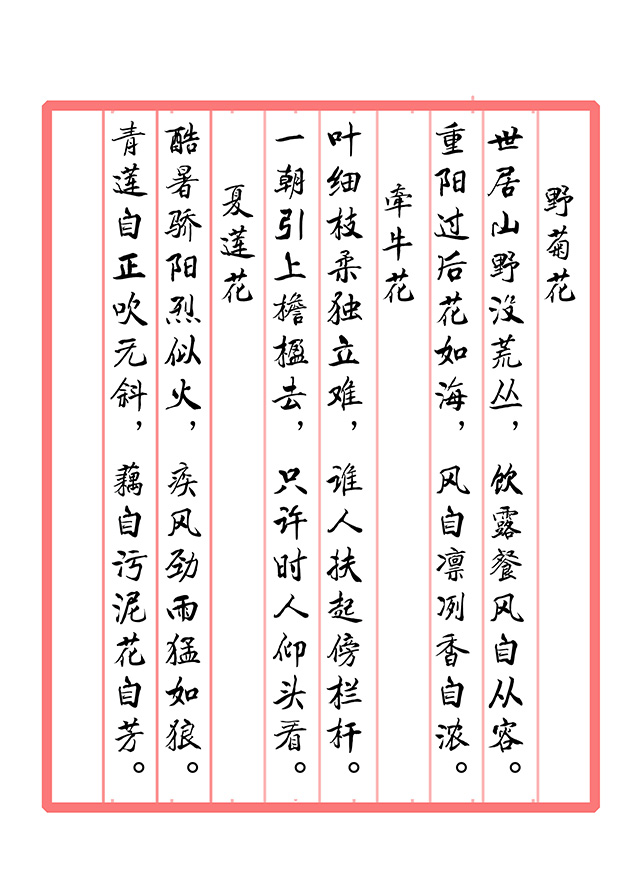 野菊花
世居山野没荒丛，饮露餐风自从容。
重阳过后花如海，风自凛冽香自浓。
牵牛花
叶细枝柔独立难，谁人扶起傍栏杆。
一朝引上檐楹去，只许时人仰头看。
夏莲花
酷暑骄阳烈似火，疾风劲雨猛如狼。
青莲自正吹无斜，藕自污泥花自芳。